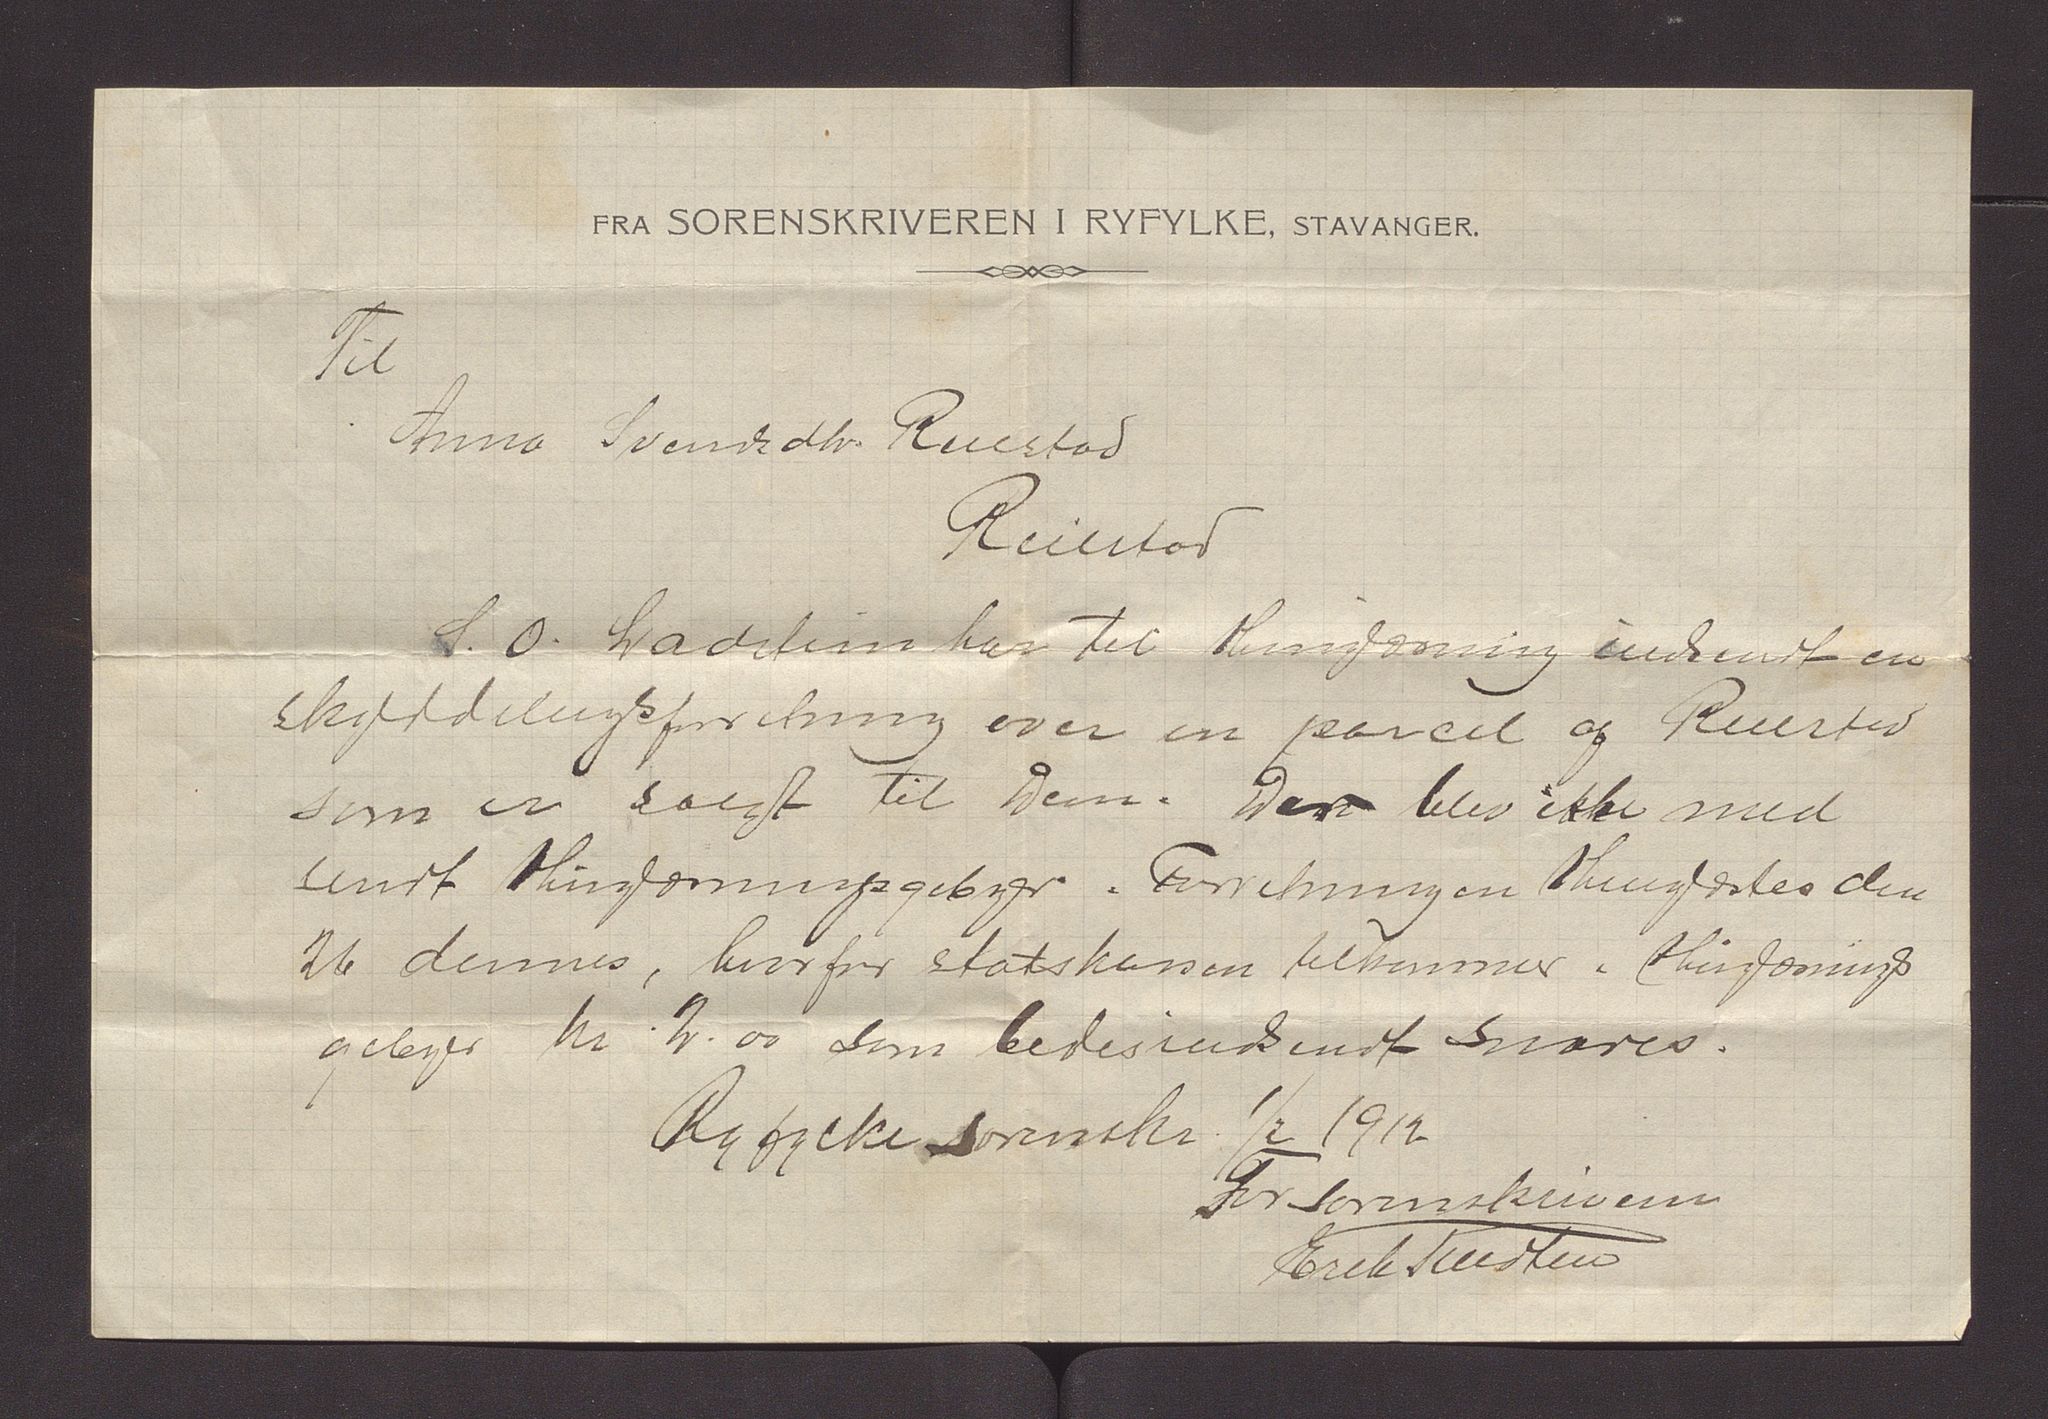 FRA SORENSKRIVEREN I RYFYLKE, STAVANGER.
Til
Anna Svendsdtr. Reilstad
Reilstad
S. O. Ladstein har til thinglæsning indsendt en
skylddelingsforretning over en parcel af Reilstad
som er solgt til Dem. Der blev ikke med
sendt thinglæsningsgebyr. Forretningen thinglæstes den
26 dennes, hvorfor statskassen tilkommer. thinglæsnings
gebyr kr. 2.00 som bedes indsendt snares.
Ryfylke sorenskr. 1/2 1912
For sorenskriveren
Erik